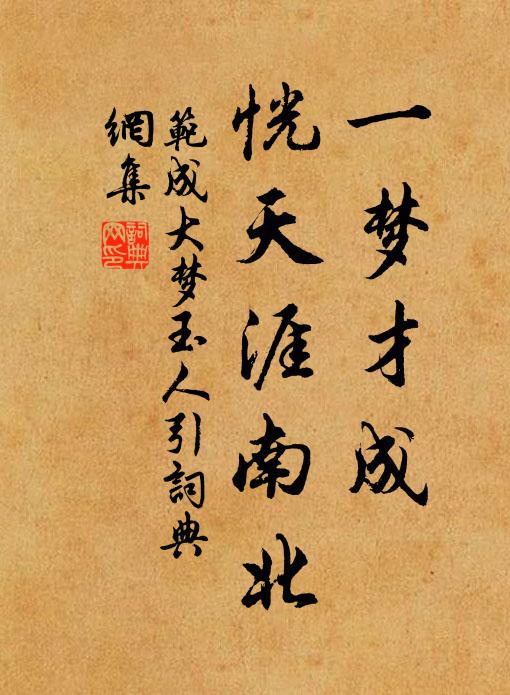 一梦才成
恍天涯南北
範成大梦玉人引詞典
網集
詞典网印